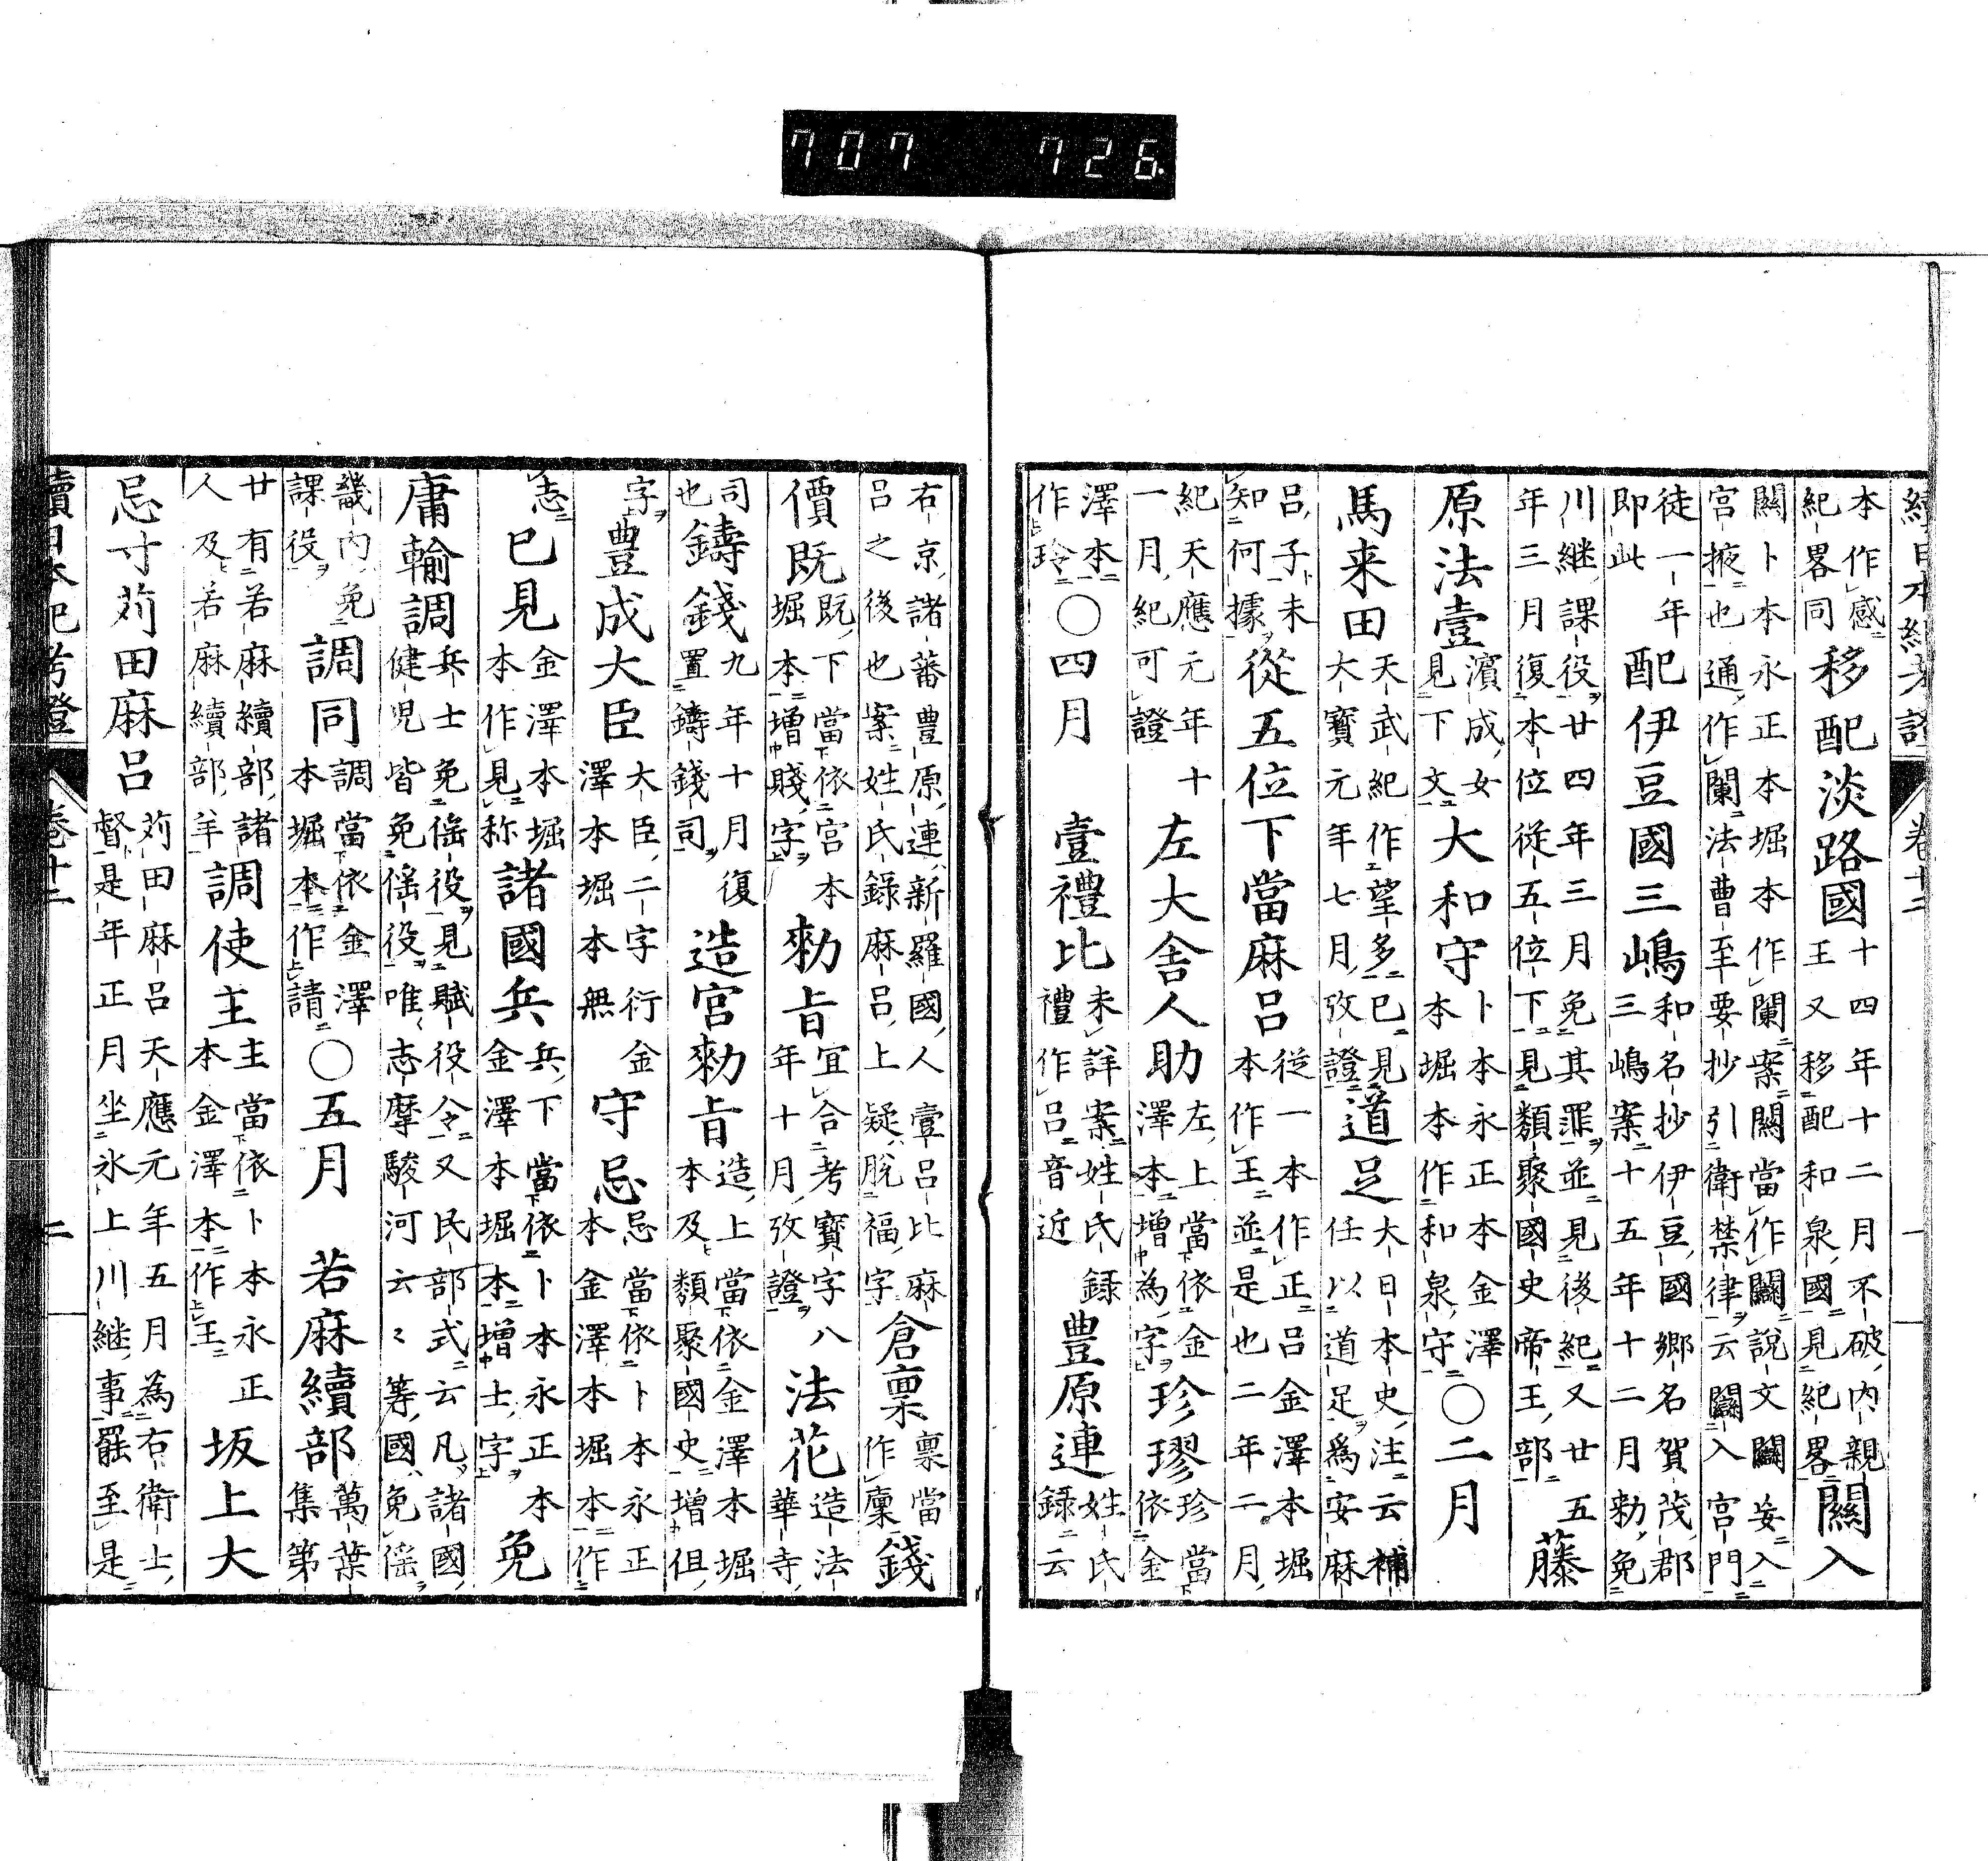 續日本紀考證 卷十二 一
本作感
紀畧同
移配淡路國
十四年十二月不破内親
王又移配和泉國見紀畧
關入
關卜本永正本堀本作闌案關當作關說文關妄入
宮掖也通作闌法曹至要抄引衛禁律云闌入宮門
徒一年
即此
配伊豆國三嶋
和名抄伊豆國鄉名賀茂郡
三嶋案十五年十二月勅免
川継課役廿四年三月免其罪並見後紀又廿五
年三月復本位從五位下見類聚國史帝王部
藤
原法壹
濱成女
見下文
大和守
卜本永正本金澤
本堀本作和泉守
〇二月
馬来田
天武紀作望多已見
大寶元年七月攷證
道足
大日本史注云補
任以道足爲安麻
呂子未
知何據
從五位下當麻呂
從一本作正呂金澤本堀
本作王並是也二年二月
紀天應元年十
一月紀可證
左大舎人助
左上當依金
澤本增為字
珍璆
珍當
依金
澤本
作玲
〇四月
壹禮比
未詳案姓氏録
禮作呂音近
豊原連
姓氏
録云
右京諸蕃豊原連新羅國人壹呂比麻
呂之後也案姓氏録麻呂上疑脱福字
倉稟
稟當
作廩
錢
價既
既下當依宮本
堀本增賤字
勅旨
宜合考寶字八
年十月攷證
法花
造法
華寺
司
也
鑄錢
九年十月復
置鑄錢司
造宮勅旨
造上當依金澤本堀
本及類聚國史增但
字
豊成大臣
大臣二字衍金
澤本堀本無
守忌
忌當依卜本永正
本金澤本堀本作
志
已見
金澤本堀
本作見称
諸國兵
兵下當依卜本永正本
金澤本堀本增士字
免
庸輸調
兵士免徭役見賦役令又民部式云凡諸國
健児皆免徭役唯志摩駿河云〻等國免徭
畿内免
課役
調同
調當依金澤
本堀本作請
〇五月
若麻續部
萬葉
集第
廿有若麻續部諸
人及若麻續部羊
調使主
主當依卜本永正
本金澤本作王
坂上大
忌寸苅田麻呂
苅田麻呂天應元年五月為右衛士
督是年正月坐氷上川継事罷至是
續日本紀考證 卷十二 二